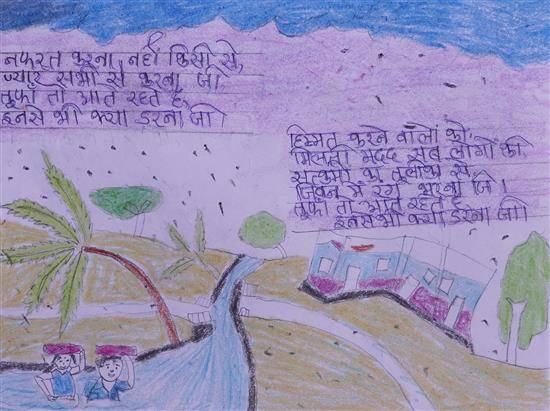 नफरत करना नहीं किसी से,
प्यार सभी से करना जी
तुफाँ तो आते रहते है,
इनसे भी क्या डरना जी।
हिम्मत करने वालों को,
मिलती मदद सब लोगों की
सत्कर्मो की तुलीका से
जिवन में रंग भरना जि।
तुफाँ तो आते रहते है
इनसे भी क्या डरना जी।